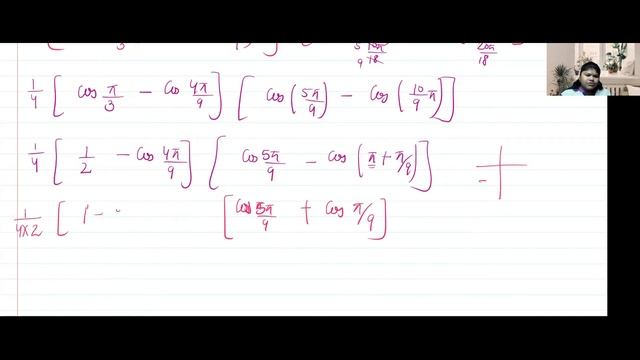 3
9 18
18
1/4 [ cos π/3 - cos 4π/9 ] [ cos (5π/9) - cos (10/9 π) ]
1/4 [ 1/2 - cos 4π/9 ] [ cos 5π/9 - cos (π + π/9) ]
1/4×2 [ 1 - [ cos 5π/9 + cos π/9 ]